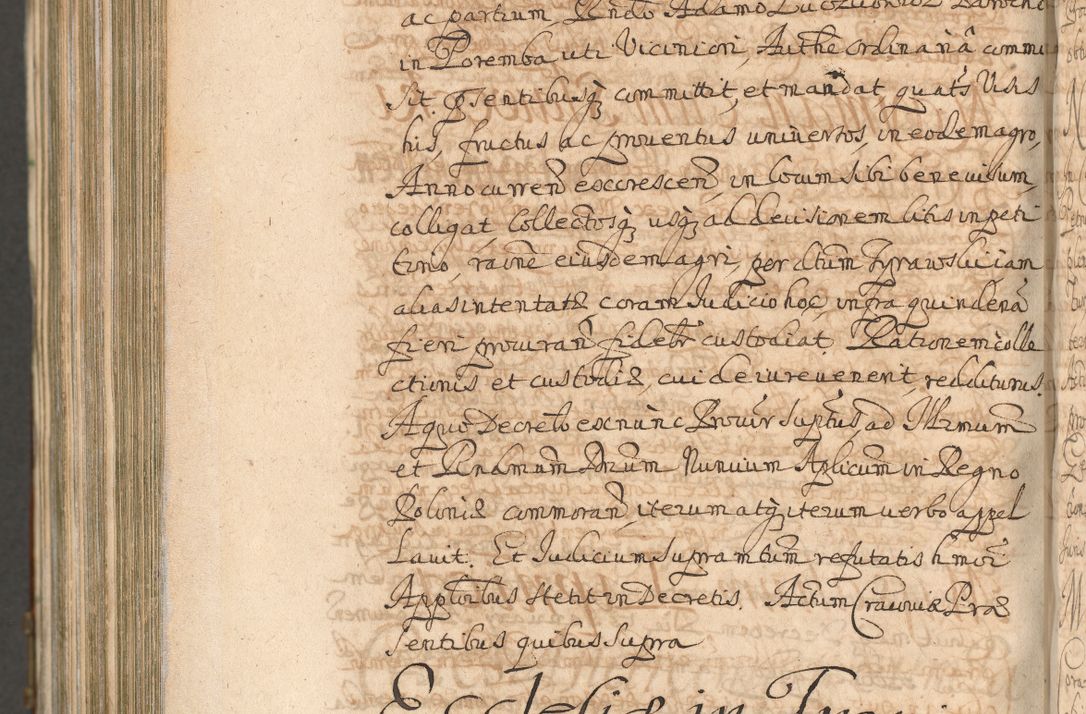 ac partium Rndo Adamo Luczkowicz Parocho
in Poremba uti Viciniori, Authe ordinaria commi
sit. Psentibusq committit, et mandat quats Visis
his, fructus ac proventus universos, in eodem agro,
Anno curren excrescen, in locum sibi benevisum,
colligat Collectosq usq ad decisionem litis in peti
torio, raine eiusdem agri, per dtum Zyrawski iam
alias intentatæ, coram Judicio hoc, infra quindena
fieri procuran fideltr custodiat. Rationem colle
ctionis et custodiæ, cui de iure venerit, redditurus.
A quo Decreto ex nunc Provir suptus, ad Illrmum
et Rndmum Dnum Nuncium Aplicum in Regno
Poloniæ commoran, iterum atq iterum verbo appel
lavit. Et Judicium supramtum refutatis hmoi
Appltoibus stetit in Decretis. Actum Cracoviæ Præ
sentibus quibus supra
Ecclesiæ in